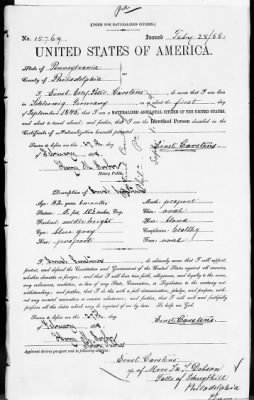 [FORM FOR NATURALIZED CITIZEN.]
No. 15769. Issued Feby 28/88.
UNITED STATES OF AMERICA.
State of Pennsylvania
County of Philadelphia
I, Ernst Carstens, do swear that I was born
in Schleswig Germany on or about the first day
of September 1845, that I am a NATURALIZED AND LOYAL CITIZEN OF THE UNITED STATES,
and about to travel abroad; and further, that I am the Identical Person described in the
Certificate of Naturalization herewith presented.
Sworn to before me this 27th day
of February
Ernst Carstens
Notary Public
Description of Ernst Carstens
Age: 42 years
Mouth:
Stature: 5 feet, inches, Eng.
Chin: oval
Forehead: middle height
Hair: blond
Eyes: blue gray
Complexion: healthy
Nose:
Face: oval
I, Ernst Carstens, do solemnly swear that I will support,
defend, the Constitution and Government of the United States against all enemies,
whether domestic or foreign; and that I will bear true faith, allegiance, and loyalty to the same,
any ordinance, resolution, or law of any State, Convention, or Legislature to the contrary not-
withstanding; and further, that I do this with a full determination, pledge, and purpose, with-
out any mental reservation or evasion whatsoever; and further, that I will well and faithfully
perform all the duties which may be required of me by law. So help me God.
Sworn to before me this 27th day
of February
Ernst Carstens
Applicant desires passport sent to following address:
Ernst Carstens
Dobson
Falls of Schuylkill
Philadelphia